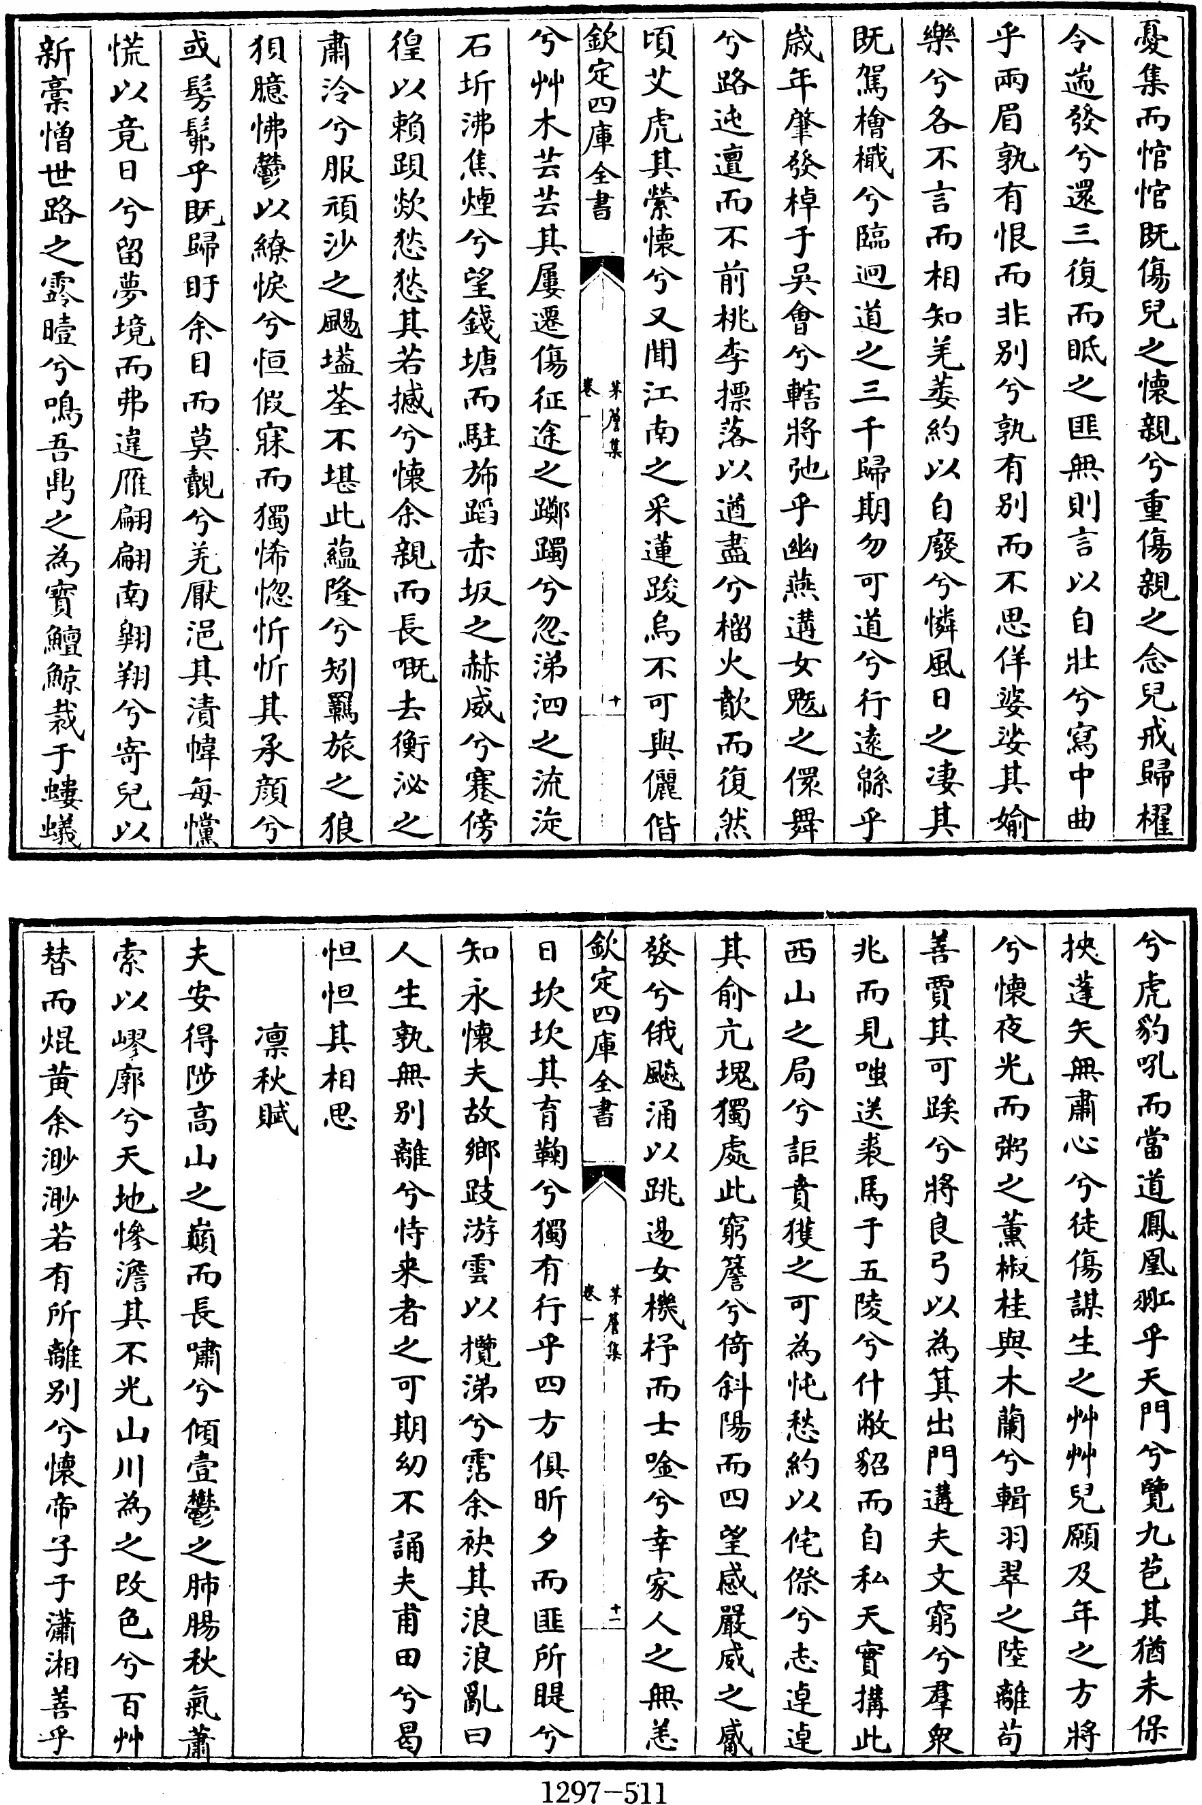 憂集而悺悺既傷兒之懷親兮重傷親之念兒戒歸櫂
令遄發兮還三復而眡之匪無則言以自壯兮寫中曲
乎兩眉孰有恨而非別兮孰有別而不思佯婆娑其媮
樂兮各不言而相知羌萎約以自廢兮憐風日之凄其
既駕檜檝兮臨迥道之三千歸期勿可道兮行遠緜乎
歲年肇發棹于吳會兮轄將弛乎幽燕遘女魃之儇舞
兮路迍邅而不前桃李摽落以遒盡兮榴火歊而復然
頃艾虎其縈懷兮又聞江南之采蓮踆烏不可與儷偕
欽定四庫全書
茅簷集
卷一
十
兮艸木芸芸其屢遷傷征途之躑躅兮忽涕泗之流淀
石圻沸焦煙兮望錢塘而駐斾蹈赤坂之赫威兮蹇傍
徨以賴跟欻愁愁其若撼兮懷余親而長嘅去衡泌之
肅泠兮服頑沙之颺壒荃不堪此蘊隆兮矧羈旅之狼
狽臆怫鬱以繚悷兮恒假寐而獨悕惚忻忻其承顔兮
或髣髴乎既歸盱余目而莫覿兮羌厭浥其漬幃每戃
慌以竟日兮留夢境而弗違雁翩翩南翺翔兮寄兒以
新稾憎世路之霿曀兮鳴吾鼎之為寶鱣鯨裁于螻蟻
兮虎豹吼而當道鳳凰䎕乎天門兮覽九苞其猶未保
挾蓬矢無肅心兮徒傷謀生之艸艸兒願及年之方將
兮懷夜光而粥之薰椒桂與木蘭兮輯羽翠之陸離苟
善賈其可踐兮將良弓以為箕出門遘夫文窮兮羣衆
兆而見嗤送裘馬于五陵兮什敝貂而自私天實搆此
西山之局兮詎賁獲之可為忳愁約以侘傺兮志逴逴
其俞亢塊獨處此窮簷兮倚斜陽而四望感嚴威之觱
發兮俄飈涌以跳邊女機杼而士唫兮幸家人之無恙
欽定四庫全書
茅簷集
卷一
十一
日坎坎其育鞠兮獨有行乎四方俱昕夕而匪所睼兮
知永懷夫故鄉跂游雲以攬涕兮霑余袂其浪浪亂曰
人生孰無别離兮恃来者之可期幼不誦夫甫田兮曷
怛怛其相思
凛秋賦
夫安得陟高山之巔而長嘯兮傾壹鬱之肺腸秋氣蕭
索以嵺廓兮天地慘澹其不光山川為之改色兮百艸
替而焜黄余渺渺若有所離别兮懷帝子于瀟湘善乎
1297-511